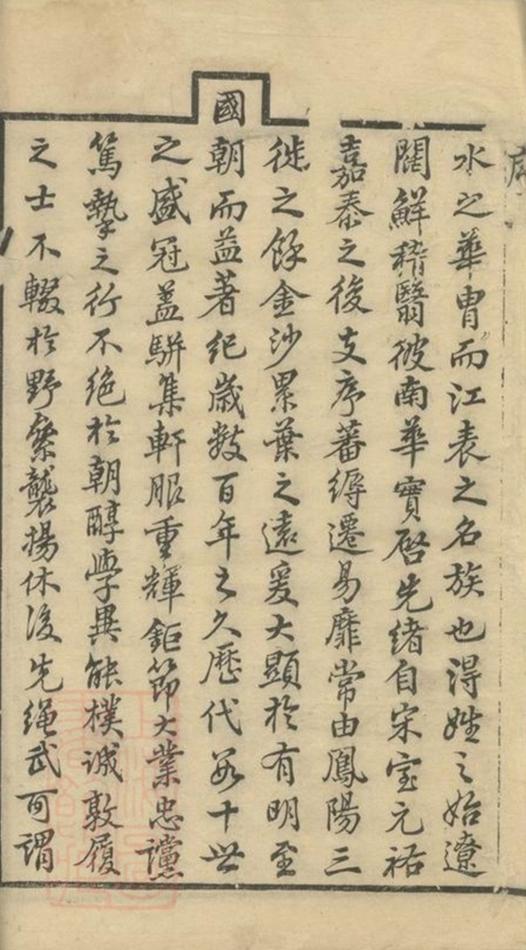 水之華胄而江表之名族也得姓之始遼
闊鮮稽翳彼南華實啓先緒自宋寶元祐
嘉泰之後支序蕃縟遷易靡常由鳳陽三
徙之餘金沙累葉之遠爰大顯於有明至
國朝而益著紀歳數百年之久歷代數十世
之盛冠盖駢集軒服重輝鉅節大業忠讜
篤摯之行不絶於朝醇學異能樸誠敦履
之士不輟於野縻襲揚休後先绳武可謂